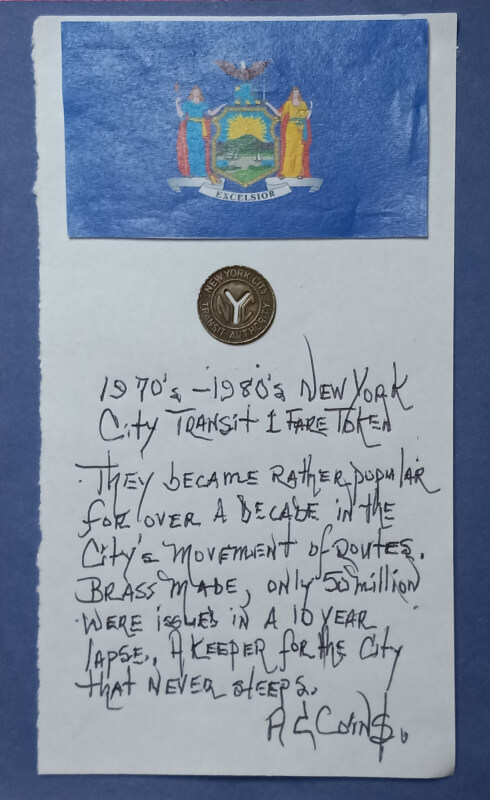 EXCELSIOR
NEW YORK CITY
NYC
TRANSIT AUTHORITY
1970's - 1980's NEW YORK
City TRANSit 1 FARE TOKEN
THEY bECAME RAtHER populAR
foR OVER A DECADE iN tHE
City's MOVEMENT of ROUTES.
BRASS MADE, ONly 50 million
WERE issuED iN A 10 YEAR
lApSE. A KEEPER foR tHE City
tHAt NEVER slEEPS.
A & COiN$.